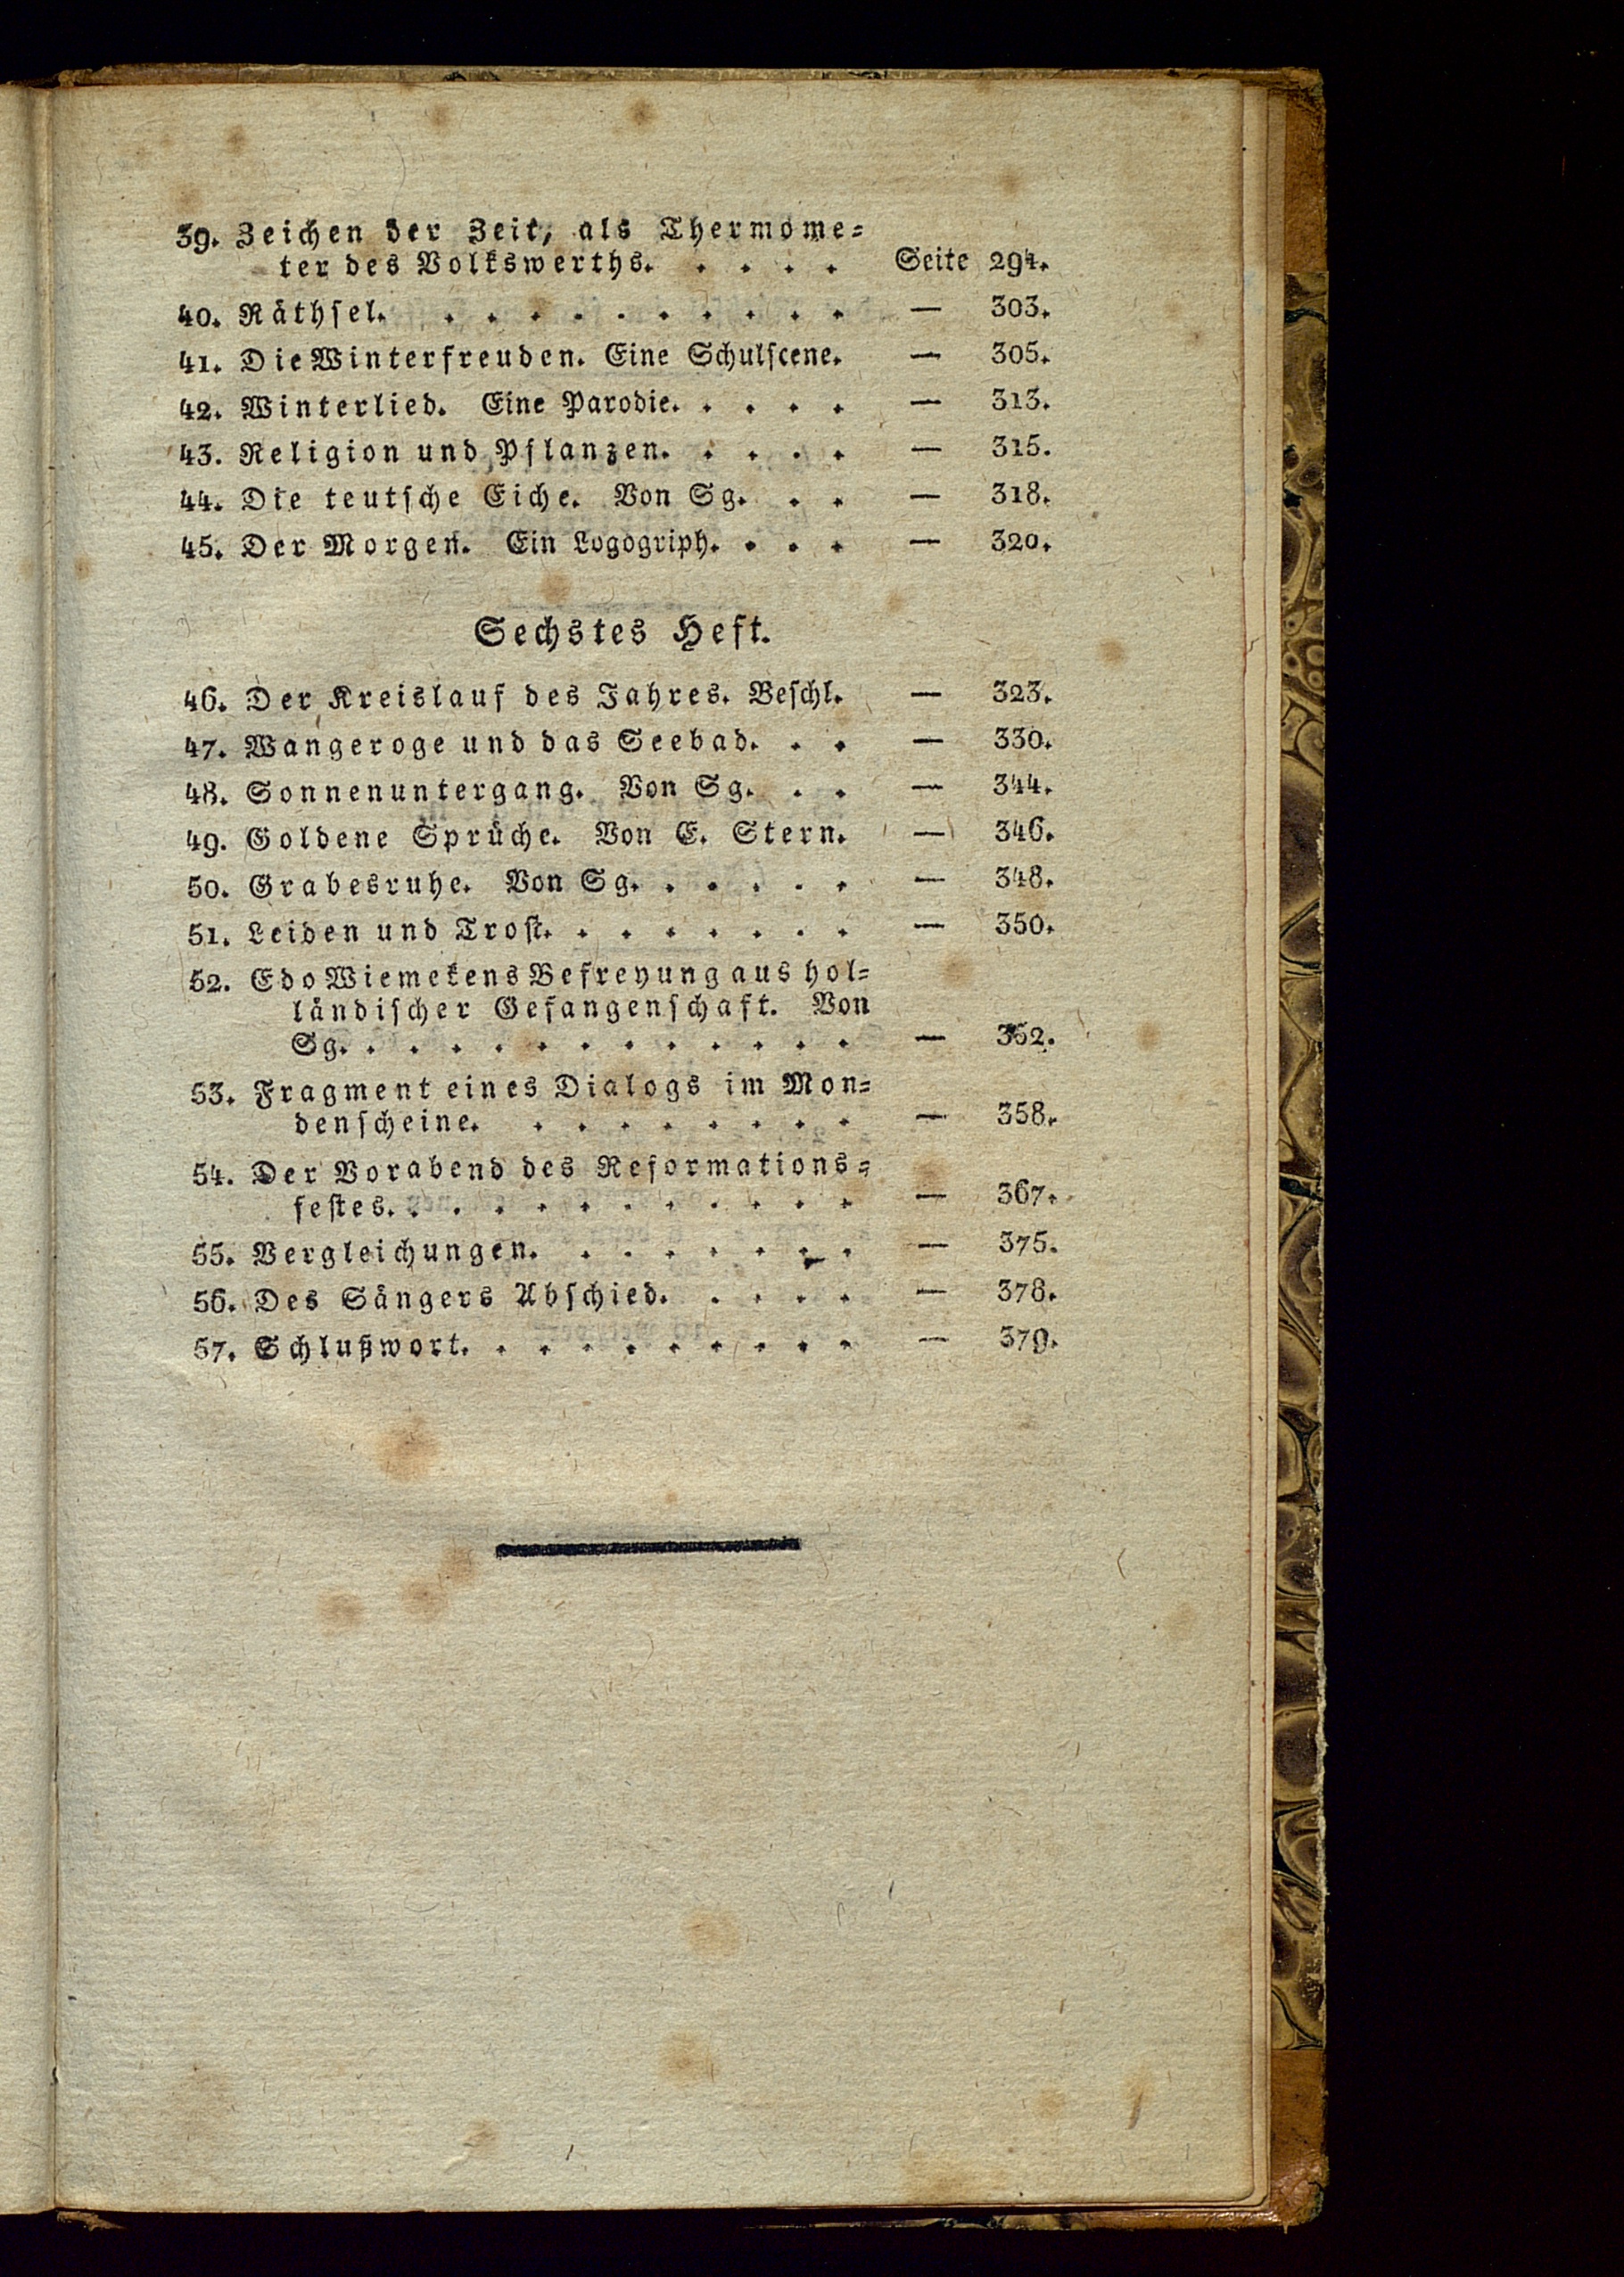 39. Zeichen der Zeit, als Thermome-
ter des Volkswerths. . . . . Seite 294.
40. Räthsel. . . . . . . . . . . — 303.
41. Die Winterfreuden. Eine Schulscene. — 305.
42. Winterlied. Eine Parodie. . . . . — 313.
43. Religion und Pflanzen. . . . . — 315.
44. Die teutsche Eiche. Von Sg. . . — 318.
45. Der Morgen. Ein Logogriph. . . . — 320.
Sechstes Heft.
46. Der Kreislauf des Jahres. Beschl. — 323.
47. Wangeroge und das Seebad. . . — 330.
48. Sonnenuntergang. Von Sg. . . — 344.
49. Goldene Sprüche. Von E. Stern. — 346.
50. Grabesruhe. Von Sg. . . . . . — 348.
51. Leiden und Trost. . . . . . . . — 350.
52. Edo Wiemekens Befreyung aus hol-
ländischer Gefangenschaft. Von
Sg. . . . . . . . . . . . . — 352.
53. Fragment eines Dialogs im Mon-
denscheine. . . . . . . . . — 358.
54. Der Vorabend des Reformations-
festes. . . . . . . . . . . . — 367.
55. Vergleichungen. . . . . . . . — 375.
56. Des Sängers Abschied. . . . . — 378.
57. Schlußwort. . . . . . . . . . — 379.